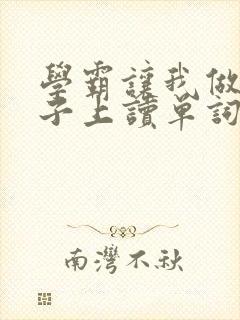 學霸讓我做
子上讀單詞
南灣不秋